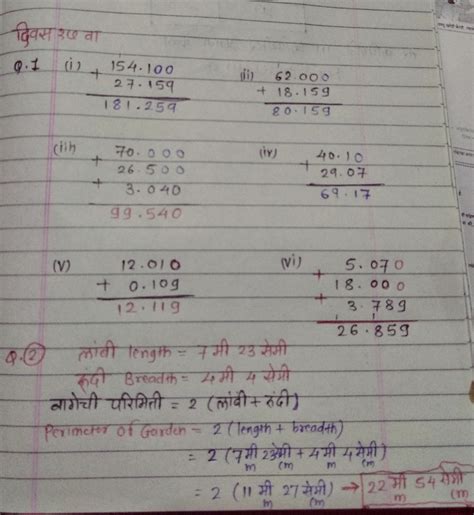 दिवस २७ वा
Q.1 (i) 154.100
+ 27.159
181.259
(ii) 62.000
+ 18.159
80.159
(iii) 70.000
+ 26.500
+ 3.040
99.540
(iv) 40.10
+ 29.07
69.17
(v) 12.010
+ 0.109
12.119
(vi) 5.070
+ 18.000
+ 3.789
26.859
Q.2 लांबी length = 7 मी 23 सेमी
रुंदी Breadth = 4 मी 4 सेमी
बागेची परिमिती = 2 (लांबी + रुंदी)
Perimeter of Garden = 2 (length + breadth)
= 2 (7 मी 23 सेमी + 4 मी 4 सेमी)
m cm m cm
= 2 (11 मी 27 सेमी) → 22 मी 54 सेमी
m cm m cm